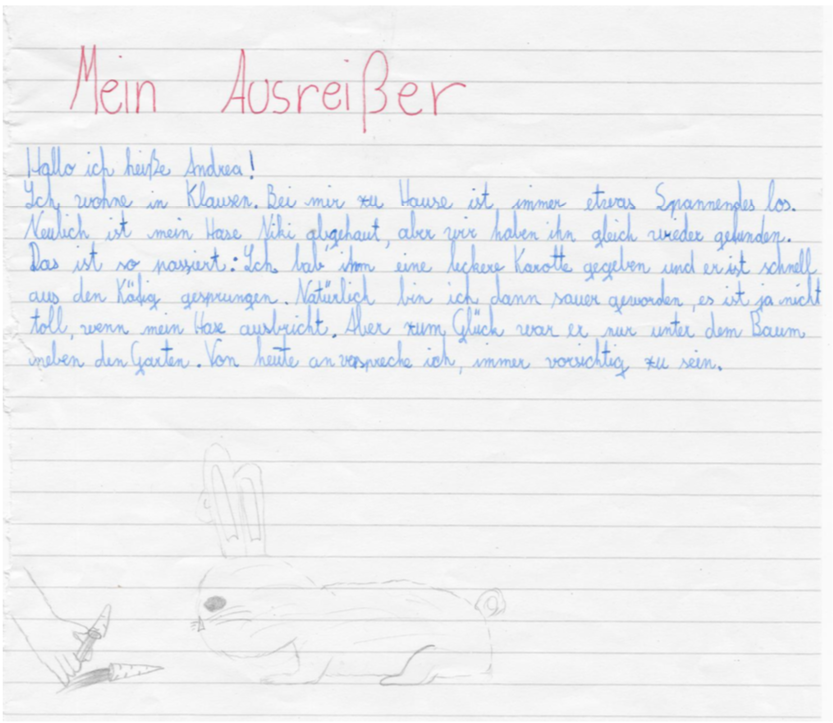 Mein Ausreißer
Hallo ich heiße Andrea!
Ich wohne in Klausen. Bei mir zu Hause ist immer etwas Spannendes los.
Neulich ist mein Hase Niki abgehaut, aber wir haben ihn gleich wieder gefunden.
Das ist so passiert: Ich hab' ihm eine leckere Karotte gegeben und er ist schnell
aus den Käfig gesprungen. Natürlich bin ich dann sauer geworden, es ist ja nicht
toll, wenn mein Hase ausbricht. Aber zum Glück war er nur unter dem Baum
neben den Garten. Von heute an verspreche ich, immer vorsichtig zu sein.